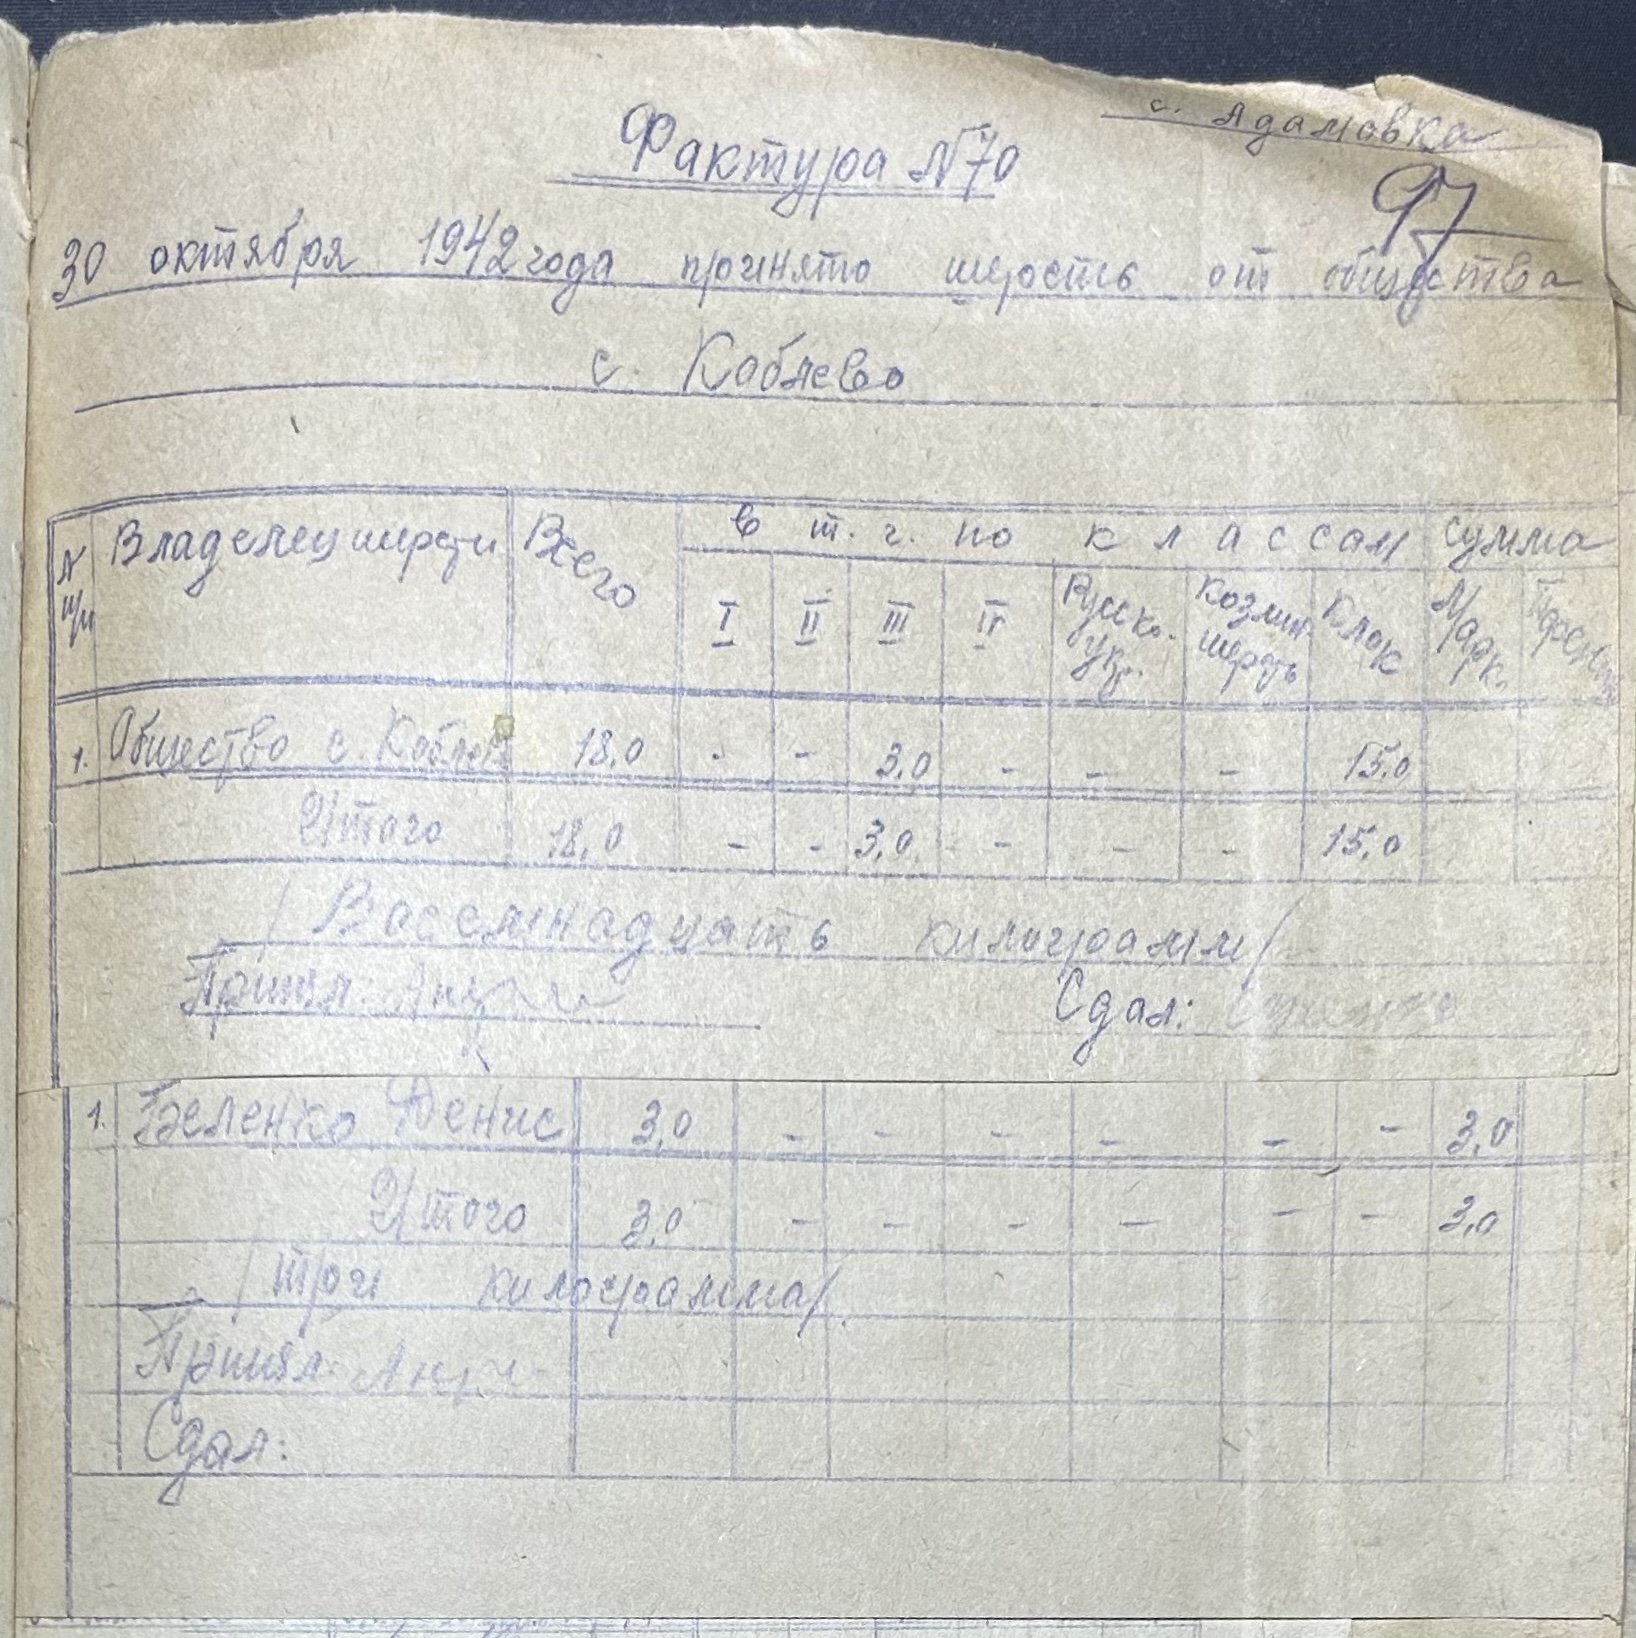 с. Адамовка
Фактура №70
97
30 октября 1942 года принято шерсть от общества
с. Коблево
№ п/п Владелец шерсти Всего в т. ч. по классам сумма
I II III IV Русско-укр. Козлин. шерсть Клок Марк.
1. Общество с. Коблев 18,0 - - 3,0 - - - 15,0
Итого 18,0 - - 3,0 - - - 15,0
/Вассемнадцать килограмм/
Принял: Сдал:
1. Беленко Денис 3,0 - - - - - - 3,0
Итого 3,0 - - - - - - 3,0
/три килограмма/.
Принял:
Сдал: